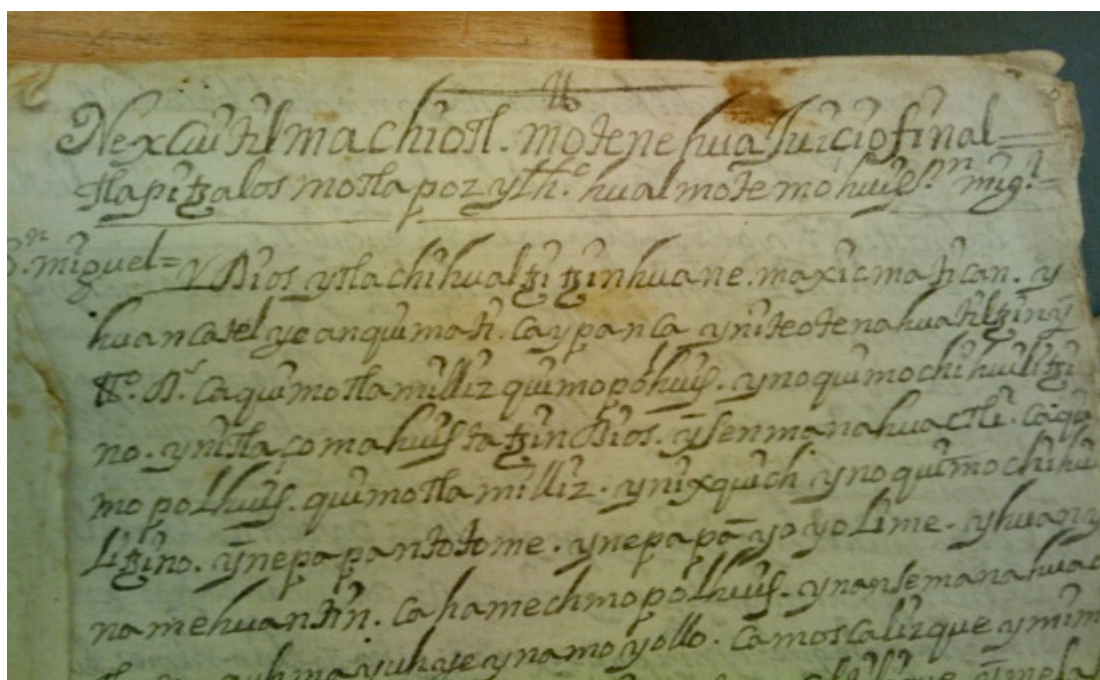 Nexcuitil machiotl. motenehua Juicio final
tlapitzalos motlapoz ylh.c hualmotemohuis S.n mig.l
S.n miguel = Y Dios ytlachihualtzitzinhuane. maxicmatican. y
huancatel ye anquimati. ca ypan ca yniteotenahuatiltzin y
tt.o D.s ca quimotlamilliz quimopolhuis. yn oquimochihuilitzi
no. yn itlaçomahuistatzin Dios. ȳ semanahuactli. ca qui
mopolhuis. quimotlamilliz. yn ixquich yn oquimochihui
litzino. ȳ nepapan tototome. y nepapā yoyolime. yhuan y
namehuantin. ca hamechmopolhuis. yn an semanahuac
auh ma yuh ye yn amoyollo. ca moscalizque y mimi